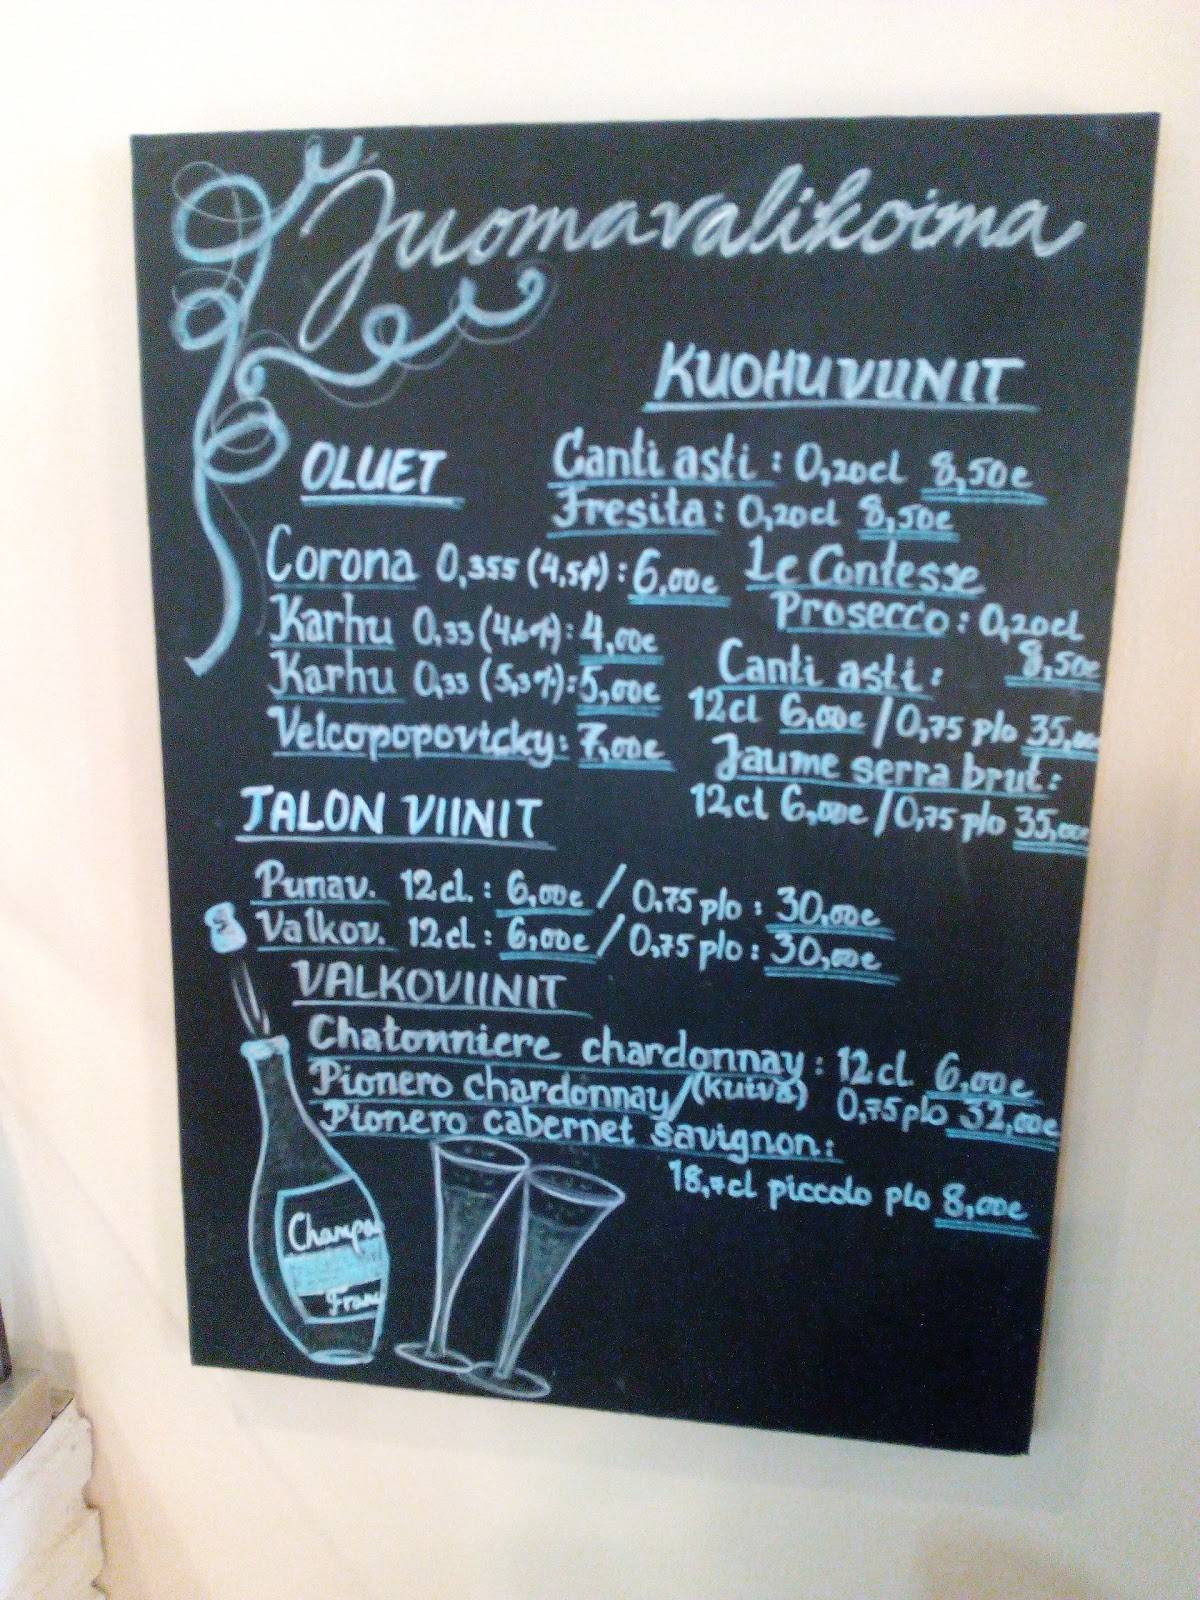 Juomavalikoima
KUOHUVIINIT
Canti asti : 0,20cl 8,50e
Fresita : 0,20cl 8,50e
Le Contesse
Prosecco : 0,20cl
8,50e
Canti asti :
12cl 6,00e / 0,75 plo 35,00e
Jaume serra brut :
12cl 6,00e / 0,75 plo 35,00e
OLUET
Corona 0,355 (4,5%) : 6,00e
Karhu 0,33 (4,6%) : 4,00e
Karhu 0,33 (5,3%) : 5,00e
Velcopopovicky : 7,00e
TALON VIINIT
Punav. 12cl. : 6,00e / 0,75 plo : 30,00e
Valkov. 12cl. : 6,00e / 0,75 plo : 30,00e
VALKOVIINIT
Chatonniere chardonnay : 12cl 6,00e
Pionero chardonnay / (kuiva) 0,75 plo 32,00e
Pionero cabernet savignon :
18,7cl piccolo plo 8,00e
Champa
Fran